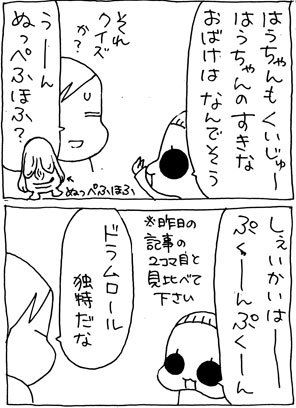 はうちゃんもくいじゅー
はうちゃんのすきな
おばけはなんでそう
それ
クイズ
か？
うーん
ぬっぺふほふ？
ぬっぺふほふ
しぇいかいはーー
ぷくーーんぷくーん
※昨日の
記事の
2コマ目と
見比べて
下さい
ドラムロール
独特だな